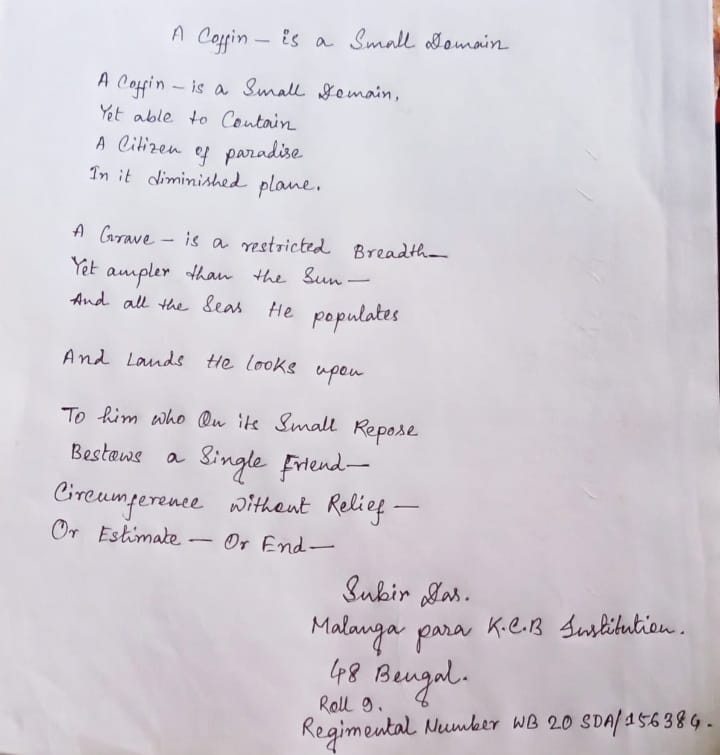 A Coffin – is a Small Domain
A Coffin – is a Small Domain,
Yet able to Contain
A Citizen of paradise
In it diminished plane.
A Grave – is a restricted Breadth—
Yet ampler than the Sun —
And all the Seas He populates
And Lands He looks upon
To him who On its Small Repose
Bestows a Single Friend—
Circumference Without Relief —
Or Estimate — Or End—
Subir Das.
Malanga para K.C.B Institution.
48 Bengal.
Roll 9.
Regimental Number WB 20 SDA/156389.